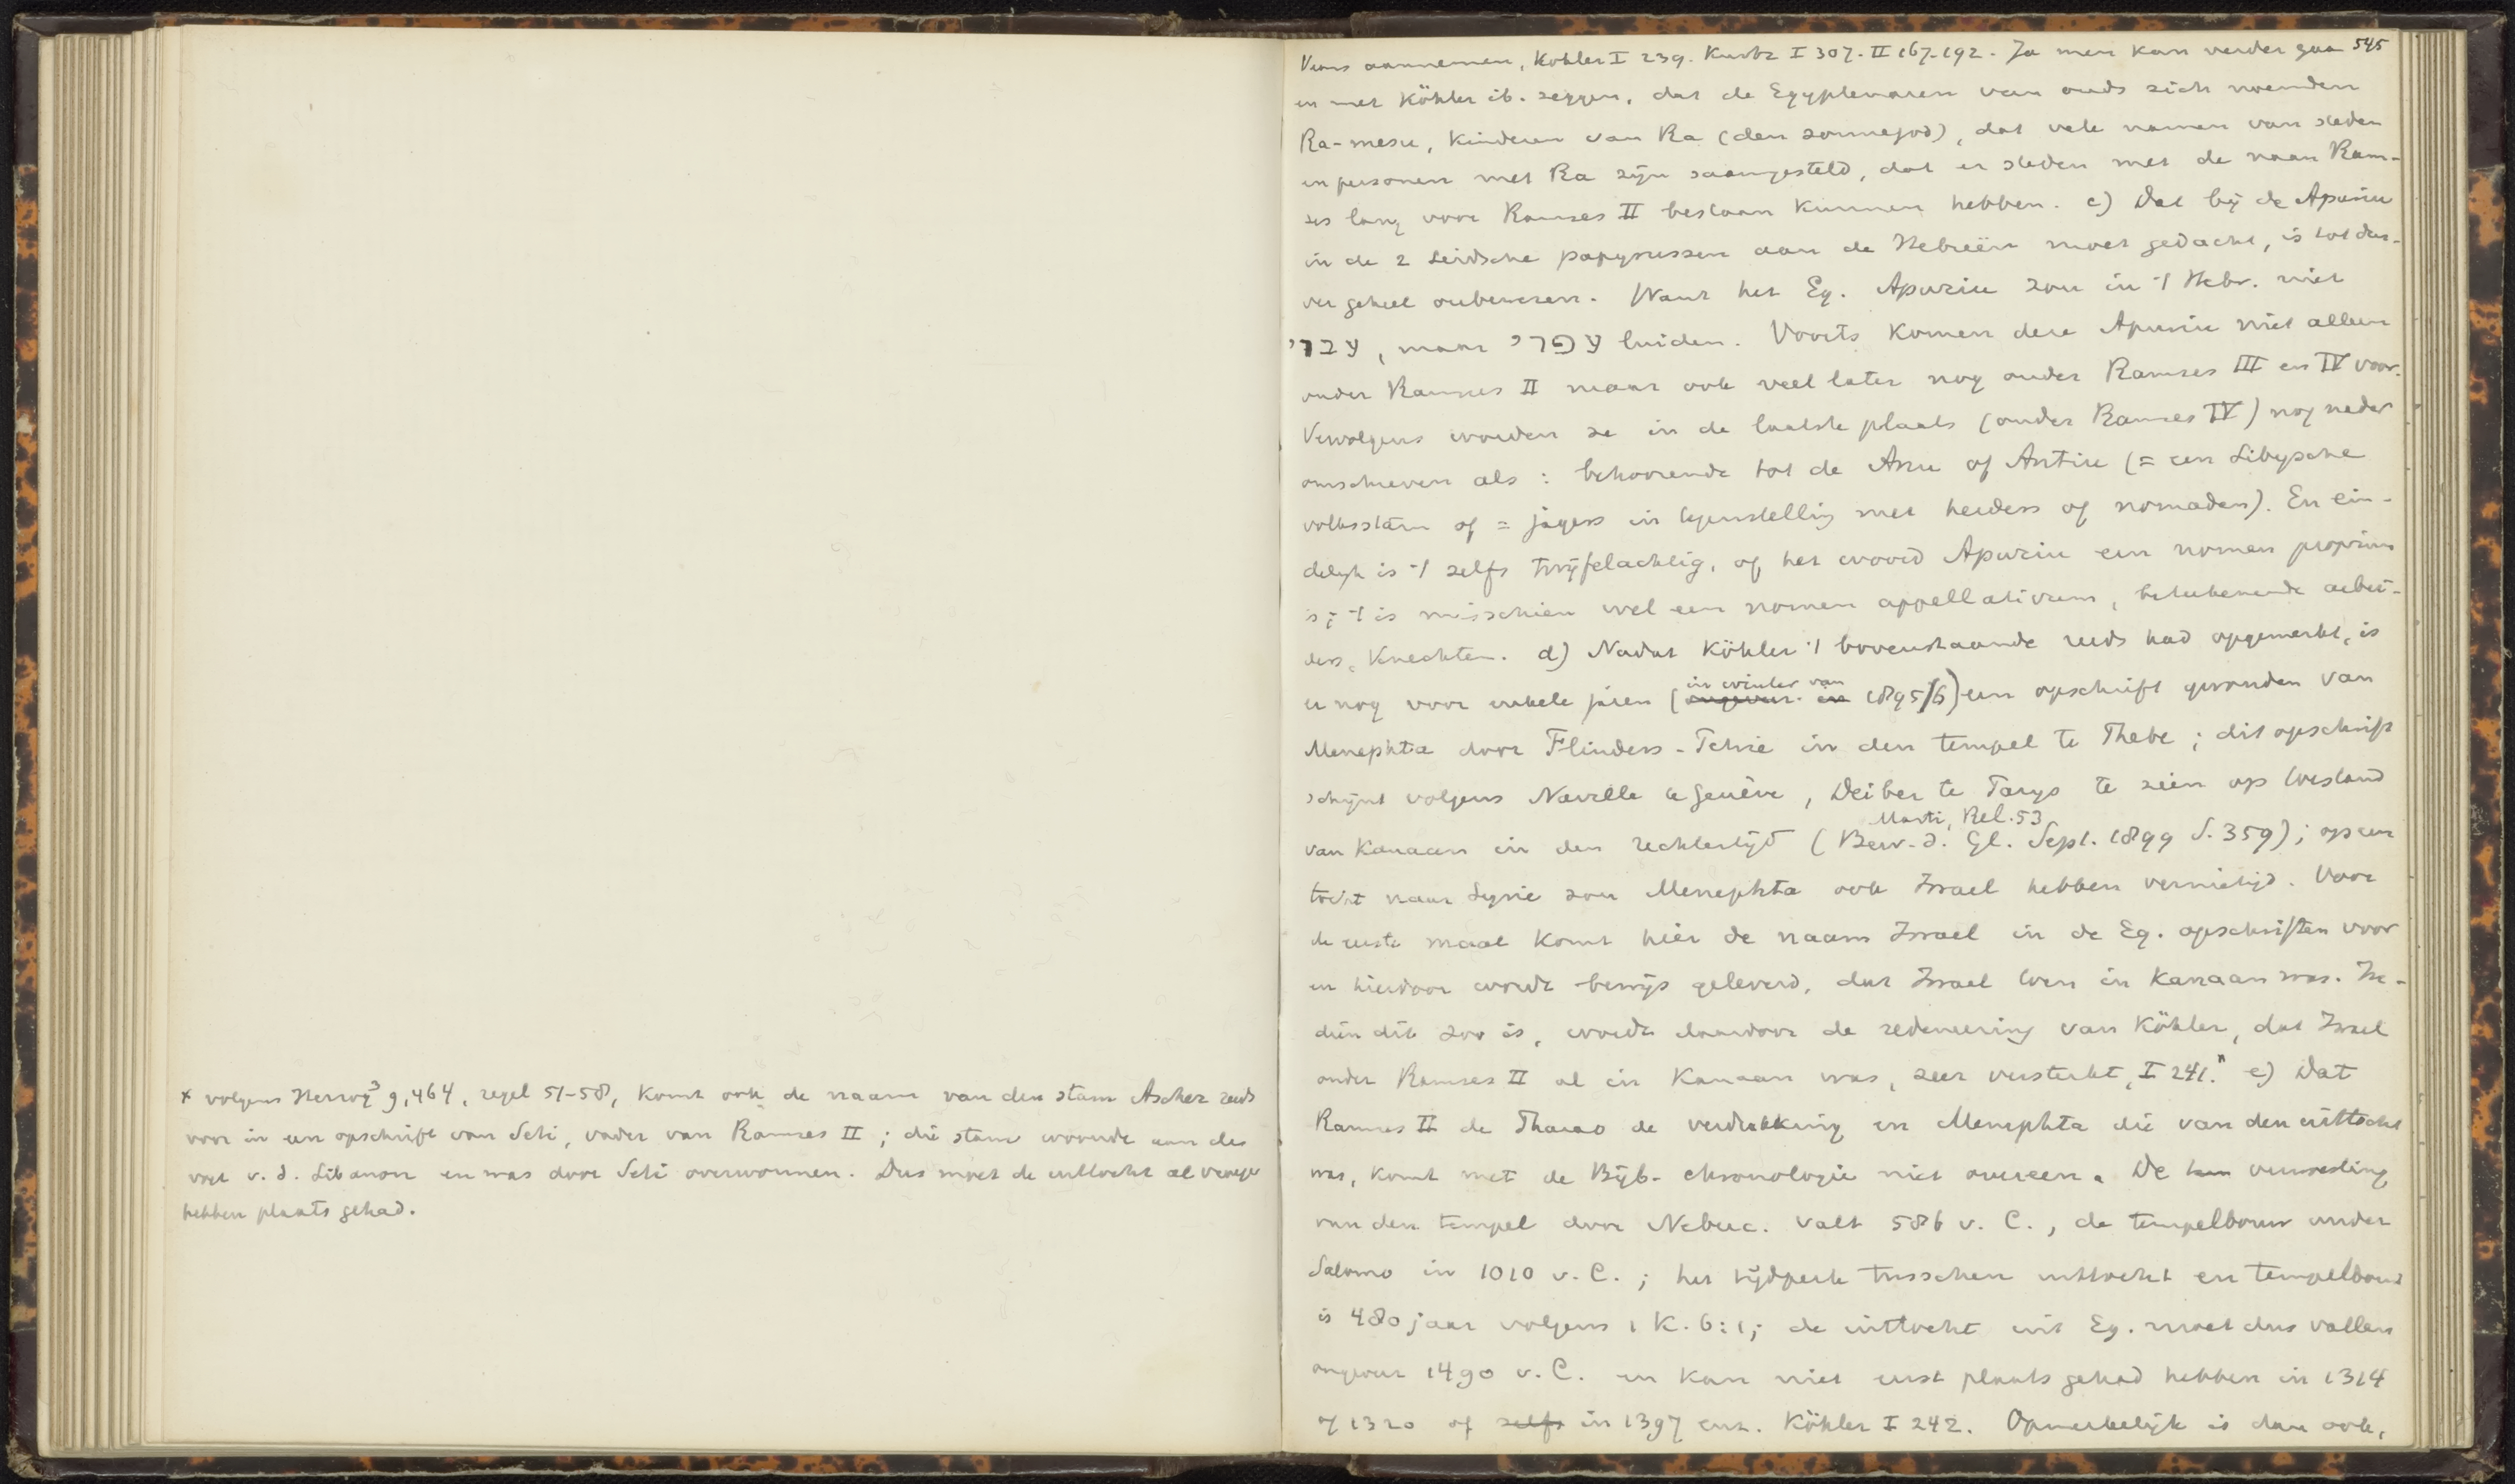 x volgens Herzog³ 9,464, regel 51-58, komt ook de naam van den stam Ascher reeds
voor in een opschrift van Seti, vader van Ramses II; die stam woonde aan den
voet v. d. Libanon en was door Seti overwonnen. Dus moet de uittocht al vroeger
hebben plaats gehad.
545
aannemen, Köhler I 239. Kurtz I 307. II 167-192. Ja men kan verder gaan
en met Köhler ib. zeggen, dat de Egyptenaren van ouds zich noemden
Ra-mesu, kinderen van Ra (den zonnegod), dat vele namen van steden
en personen met Ra zijn saamgesteld, dat er steden met de naam Ram-
ses lang voor Ramses II bestaan kunnen hebben. c) Dat bij de Apuriu
in de 2 Leidsche papyrussen aan de Hebreën moet gedacht, is tot dus-
ver geheel onbewezen. Want het Eg. Apuriu zou in 't Hebr. niet
עברי, maar עפרי luiden. Voorts komen deze Apuriu niet alleen
onder Ramses II maar ook veel later nog onder Ramses III en IV voor.
Vervolgens worden ze in de laatste plaats (onder Ramses IV) nog nader
omschreven als: behoorende tot de Anu of Antiu (= een Libysche
volksstam of = jagers in tegenstelling met herders of nomaden). En ein-
delijk is 't zelfs twijfelachtig, of het woord Apuriu een nomen proprium
is; 't is misschien wel een nomen appellativum, beteekenende arbei-
ders, knechten. d) Nadat Köhler 't bovenstaande reeds had opgemerkt, is
er nog voor enkele jaren (ongeveer in in winter van 1895/6) een opschrift gevonden van
Menephta door Flinders-Petrie in den tempel te Thebe; dit opschrift
schijnt volgens Naville te Genève, Deiber te Parijs te zien op toestand
van Kanaan in den rechtertijd (Bew. d. Gl. Sept. 1899 S. 359); Marti, Rel. 53 op een
tocht naar Syrie zou Menephta ook Israel hebben vernietigd. Voor
de eerste maal komt hier de naam Israel in de Eg. opschriften voor
en hierdoor wordt bewijs geleverd, dat Israel toen in Kanaan was. In-
dien dit zoo is, wordt daardoor de redeneering van Köhler, dat Israel
onder Ramses II al in Kanaan was, zeer versterkt, I 241.x e) Dat
Ramses II de Pharao de verdrukking en Menephta die van den uittocht
was, komt met de Bijb. chronologie niet overeen. De verwoesting
van den tempel door Nebuc. valt 586 v. C., de tempelbouw onder
Salomo in 1010 v. C.; het tijdperk tusschen uittocht en tempelbouw
is 480 jaar volgens 1 K. 6:1; de uittocht uit Eg. moet dus vallen
ongeveer 1490 v. C. en kan niet eerst plaats gehad hebben in 1314
of 1320 of zelfs in 1397 enz. Köhler I 242. Opmerkelijk is dan ook,